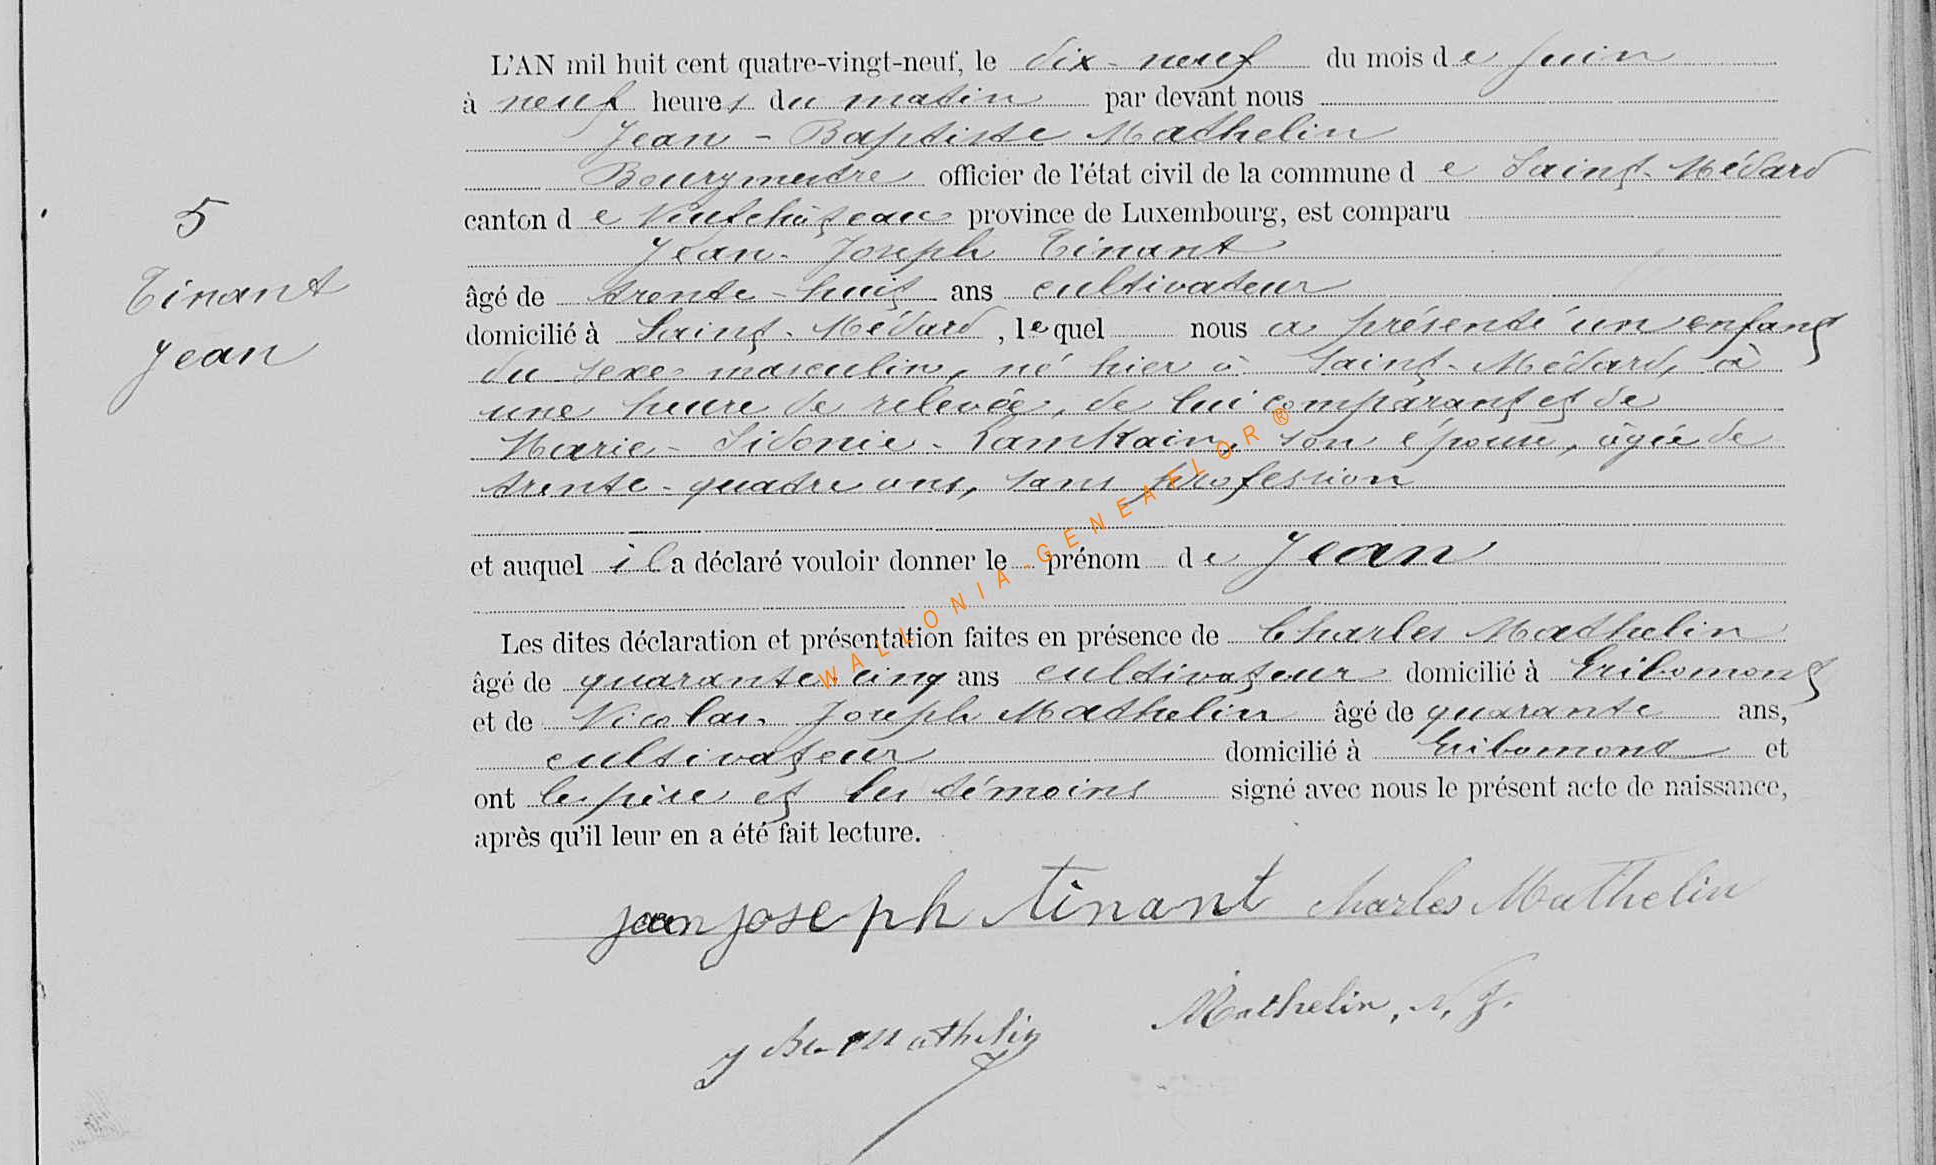 L'AN mil huit cent quatre-vingt-neuf, le dix-neuf du mois de Juin
à neuf heures du matin par devant nous
Jean-Baptiste Mathelin
Bourgmestre officier de l'état civil de la commune de Saint-Médard
canton de Neufchâteau province de Luxembourg, est comparu
Jean-Joseph Tinant
âgé de trente-huit ans cultivateur
domicilié à Saint-Médard, lequel nous a présenté un enfant
du sexe masculin, né hier à Saint-Médard, à
une heure de relevée, de lui comparant et de
Marie-Sidonie-Lamkain, son épouse, âgée de
trente-quatre ans, sans profession
et auquel il a déclaré vouloir donner le prénom de Jean
Les dites déclaration et présentation faites en présence de Charles Mathelin
âgé de quarante cinq ans cultivateur domicilié à Gribomont
et de Nicolas Joseph Mathelin âgé de quarante ans,
cultivateur domicilié à Gribomont et
ont le père et les témoins signé avec nous le présent acte de naissance,
après qu'il leur en a été fait lecture.
5
Tinant
Jean
jean joseph tinant Charles Mathelin
J Bte Mathelin Mathelin, N, J.
WALLONIA-GENEAFLOR®